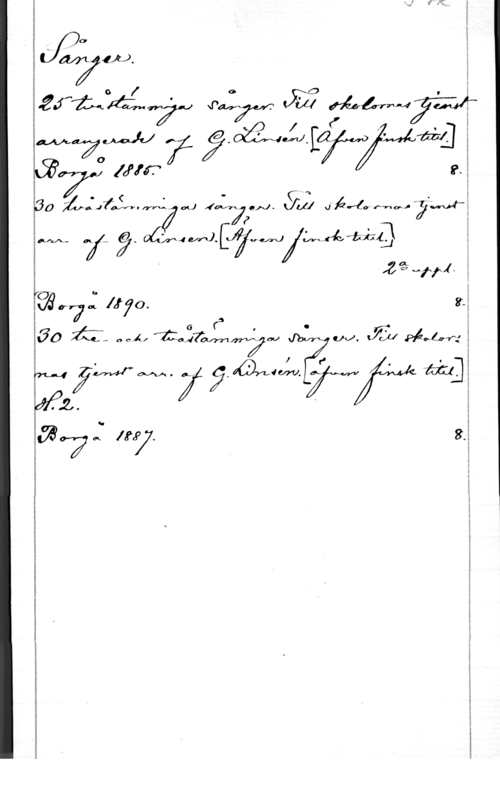 Sånger.
25 tvåstämmiga sånger. Till skolornas tjenst
arrangerade af G. Linsén. [Äfven finsk titel.]
Borgå 1885. 8.
30 tvåstämmiga sånger. Till skolornas tjenst
arr. af G. Linsen. [Äfven finsk titel.]
2a uppl.
Borgå 1890. 8.
30 tre- och tvåstämmiga sånger. Till skolor:
nas tjenst arr. af G. Linsén. [äfven finsk titel.]
H. 2.
Borgå 1887. 8.